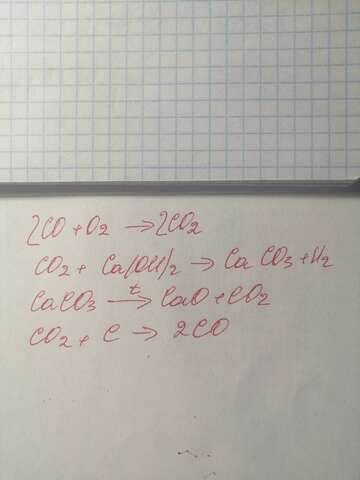 2CO + O2 → 2CO2
CO2 + Ca(OH)2 → CaCO3 + H2
CaCO3 t→ CaO + CO2
CO2 + C → 2CO